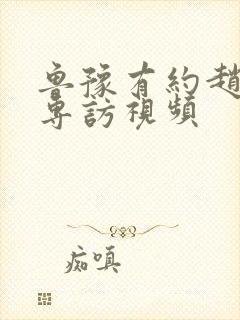 魯豫有約趙
專訪視頻
痴嗔